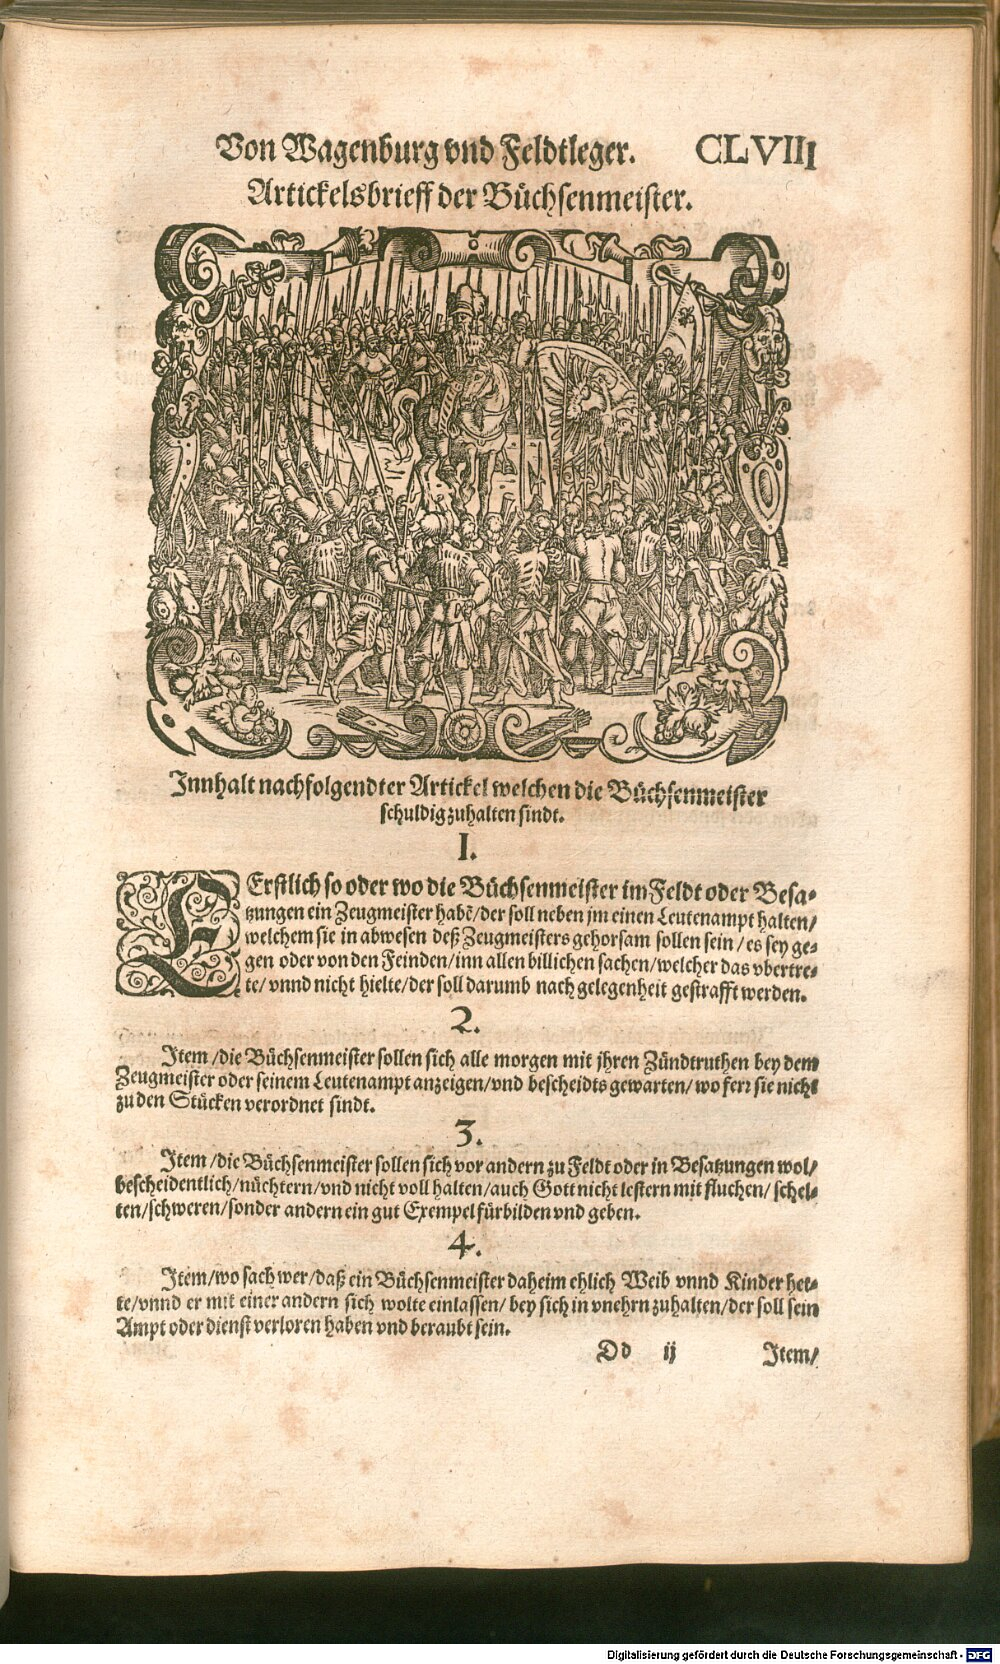 Von Wagenburg vnd Feldtleger. CLVIII
Artickelsbrieff der Büchsenmeister.
Innhalt nachfolgendter Artickel welchen die Büchsenmeister
schuldig zuhalten sindt.
I.
Erstlich so oder wo die Büchsenmeister im Feldt oder Besa-
tzungen ein Zeugmeister habē/der soll neben jm einen Leutenampt halten/
welchem sie in abwesen deß Zeugmeisters gehorsam sollen sein/es sey ge-
gen oder von den Feinden/inn allen billichen sachen/welcher das vbertre-
te/vnnd nicht hielte/der soll darumb nach gelegenheit gestrafft werden.
2.
Item/die Büchsenmeister sollen sich alle morgen mit jhren Zündtruthen bey dem
Zeugmeister oder seinem Leutenampt anzeigen/vnd bescheidts gewarten/wo ferr sie nicht
zu den Stücken verordnet sindt.
3.
Item/die Büchsenmeister sollen sich vor andern zu Feldt oder in Besatzungen wol/
bescheidentlich/nüchtern/vnd nicht voll halten/auch Gott nicht lestern mit fluchen/schel-
ten/schweren/sonder andern ein gut Exempel fürbilden vnd geben.
4.
Item/wo sach wer/daß ein Büchsenmeister daheim ehlich Weib vnnd Kinder het-
te/vnnd er mit einer andern sich wolte einlassen/bey sich in vnehrn zuhalten/der soll sein
Ampt oder dienst verloren haben vnd beraubt sein.
Dd ij Item/
Digitalisierung gefördert durch die Deutsche Forschungsgemeinschaft - DFG